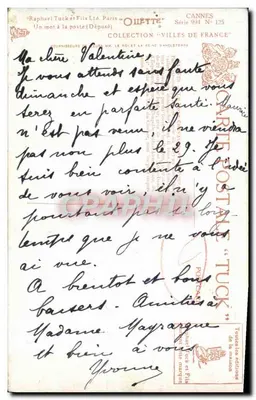 Raphael Tuck et Fils Ltd. Paris
Un mot à la poste (Déposé)
CANNES
Série 994 No 125
COLLECTION "VILLES DE FRANCE"
Ma chère Valentine,
Je vous attends sans faute
dimanche et espère que vous
serez en parfaite santé.
n'est pas venu, il ne viendra
pas non plus le 29. Je
suis bien contente à l'idée
de vous voir, il n'y a
pourtant pas si long
temps que je ne vous
ai vue.
A bientot et bons
baisers. Amitiés à
Madame Mayrargue
et bien à vous
Yvonne
CARTE POSTALE "TUCK"